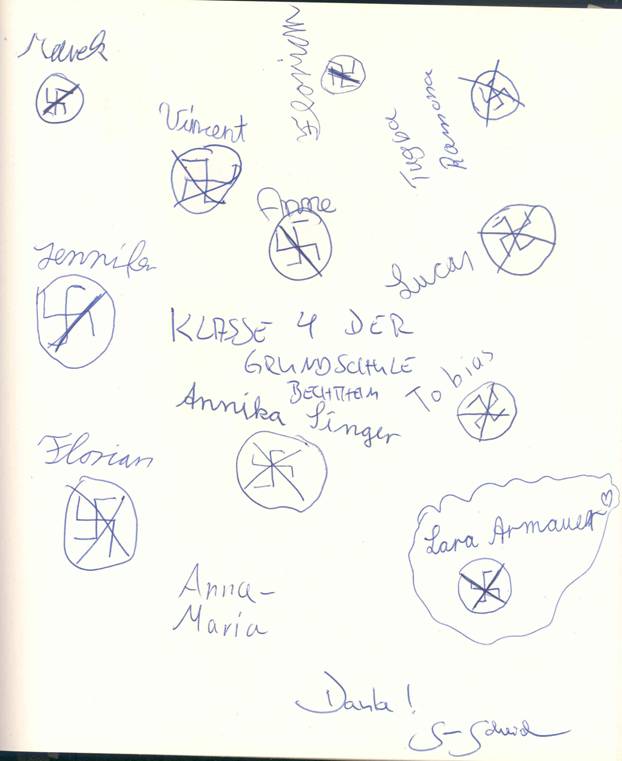 Marek
Florian
Vincent
Tugba
Ramona
Anne
Jennifer
Lucas
KLASSE 4 DER
GRUNDSCHULE
BECHTHEIM
Tobias
Annika Singer
Florian
Lara Armauer
Anna-
Maria
Danke!